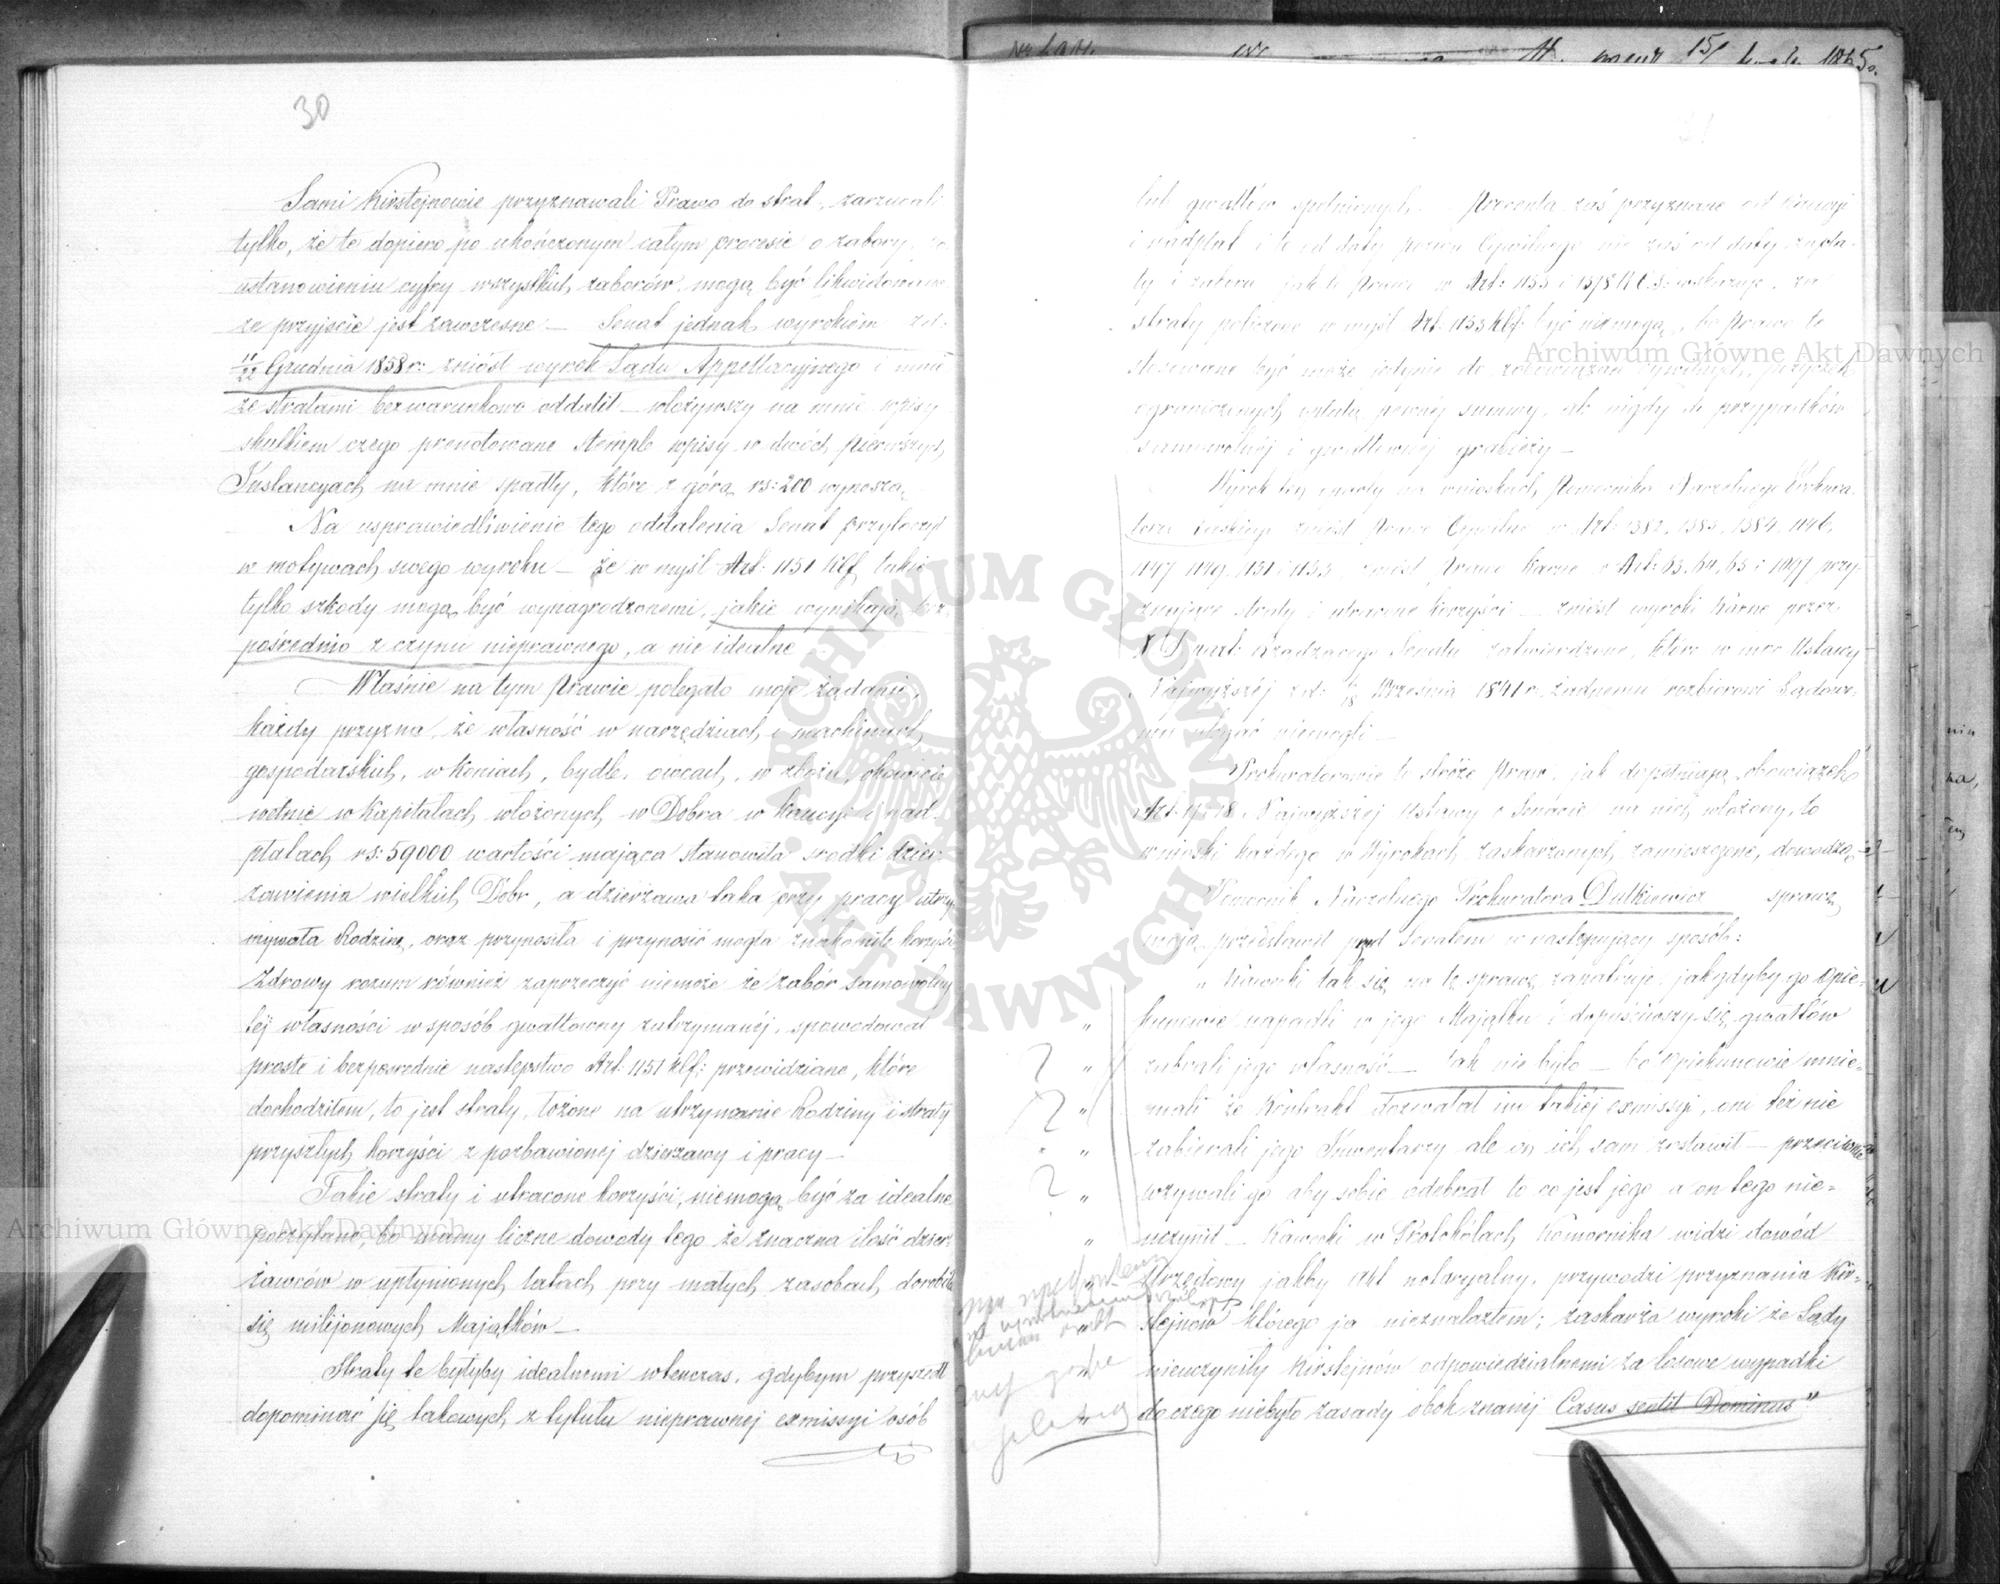 30
Sami Kirstejnowie przyznawali Prawo do strat, zarzucali
tylko, że to dopiero po ukończonym całym procesie o zabory, po
ustanowieniu cyfry wszystkich zaborów, mogą być likwidowane
że przyjście jest zawczesne — Senat jednak wyrokiem z d:
11/22 Grudnia 1858 r: zniósł wyrok Sądu Appellacyjnego i mnie
ze stratami bezwarunkowo oddalił — włożywszy na mnie wpisy
skutkiem czego prenotowane stemple wpisy w dwóch pierwszych
Instancyach na mnie spadły, które z górą rs: 200 wynoszą,
Na usprawiedliwienie tego oddalenia Senat przytoczył
w motywach swego wyroku — że w myśl Art: 1151 Klf, takie
tylko szkody mogą być wynagrodzonemi, jakie wynikają bez-
pośrednio z czynu nieprawnego, a nie idealne —
Właśnie na tym Prawie polegało moje żądanie,
każdy przyzna, że własność w narzędziach i machinach
gospodarskich, w koniach, bydle, owcach, w zbożu, okowicie
wełnie w Kapitałach włożonych w Dobra w kaucyi i nad-
płatach rs: 59000 wartości mająca stanowiła środki dzier-
żawienia wielkich Dóbr, a dzierżawa taka przy pracy utrzy-
mywała Rodzinę, oraz przynosiła i przynosić mogła znakomite korzyści
Zdrowy rozum również zaprzeczyć niemoże że zabór samowolny
tej własności w sposób gwałtowny zatrzymanej, spowodował
proste i bezpośrednie następstwo Art: 1151 Klf: przewidziane, które
dochodziłem, to jest straty, łożone na utrzymanie Rodziny i straty
przyszłych korzyści z pozbawionej dzierżawy i pracy —
Takie straty i utracone korzyści, niemogą być za idealne
poczytane, bo mamy liczne dowody tego że znaczna ilość dzier-
żawców w upłynionych latach przy małych zasobach, dorobiła
się milijonowych Majątków —
Straty te byłyby idealnemi wtenczas, gdybym przyszedł
dopominać się takowych z tytułu nieprawnej exmissyi osób
lub gwałtów spełnionych. Procenta zaś przyznane od Kaucyi
i nadpłat i to od daty pozwu Cywilnego nie zaś od daty zapła-
ty i zaboru jak to Prawo w Art: 1153 i 1378 wskazuje, za
straty policzone w myśl Art: 1153 Klf: być niemogą, bo Prawo to
stosowane być może jedynie do zobowiązań cywilnych,
ograniczonych opłatą pewnej summy, ale nigdy do przypadków
samowolnej i gwałtownej grabieży —
Wyrok ten oparty na wnioskach Pomocnika Naczelnego Prokura-
tora zniósł Prawo Cywilne w Art: 1382, 1383, 1384, 1146,
1147, 1149, 1151 i 1153, zniósł Prawo Karne w Art: 63, 64, 65 i 1097 przy-
znające straty i utracone korzyści — zniósł wyroki Karne przez
X Depart: Rządzącego Senatu zatwierdzone, które w moc Ustawy
Najwyższej z d: 6/18 Września 1841 r. żadnemu rozbiorowi Sądowe-
mu ulegać niemogli —
Prokuratorowie to stróże Praw, jak dopełniają obowiązek
Art: 17, 18 Najwyższej Ustawy o Senacie na nich włożony, to
wnioski każdego w Wyrokach zaskarżonych zamieszczone, dowodzą —
Pomocnik Naczelnego Prokuratora Dutkiewicz sprawę
moją przedstawił przed Senatem w następujący sposób:
„Kawecki tak się na tę sprawę zapatruje, jakgdyby go Opie-
„ kunowie napadli w jego Majątku i dopuściwszy się gwałtów
? „ zabrali jego własność — tak nie było — bo Opiekunowie mnie-
? „ mali że Kontrakt dozwalał im takiej exmissyi, oni też nie
„ zabierali jego Inwentarzy ale on ich sam zostawił — przeciwnie
? „ wzywali go aby sobie odebrał to co jest jego a on tego nie-
„ uczynił — Kawecki w Protokółach Komornika widzi dowód
„ Urzędowy jakby Akt notaryalny, przywodzi przyznania Kir-
stejnów którego ja nieznalazłem; zaskarża wyroki że Sądy
nieuczyniły Kirstejnów odpowiedzialnemi za losowe wypadki
„ do czego niebyło zasady obok znanej Casus sentit Dominus"
Archiwum Główne Akt Dawnych
Archiwum Główne Akt Dawnych
ARCHIWUM GŁÓWNE AKT DAWNYCH